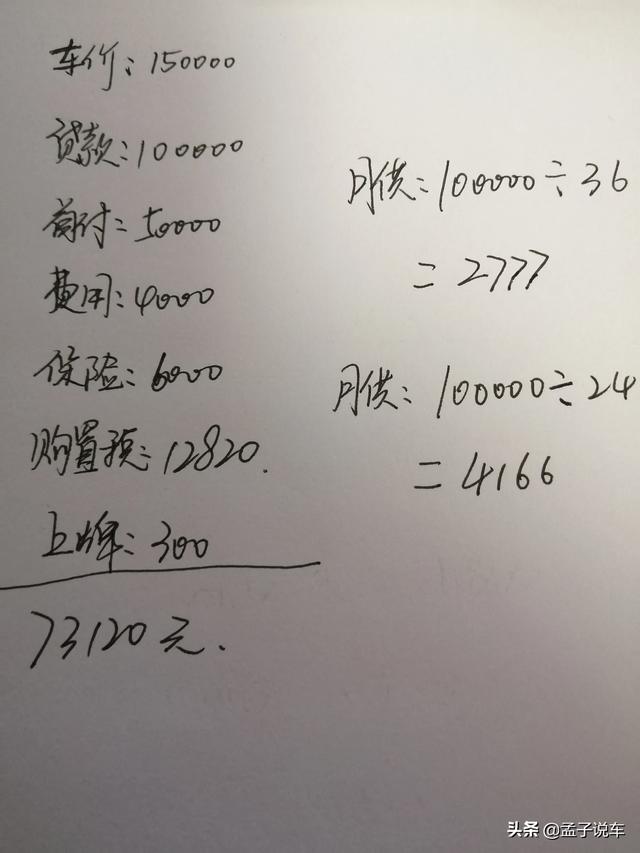 车价：150000
贷款：100000
首付：50000
费用：4000
保险：6000
购置税：12820.
上牌：300
73120元.
月供：100000÷36
=2777
月供：100000÷24
=4166
头条 @孟子说车